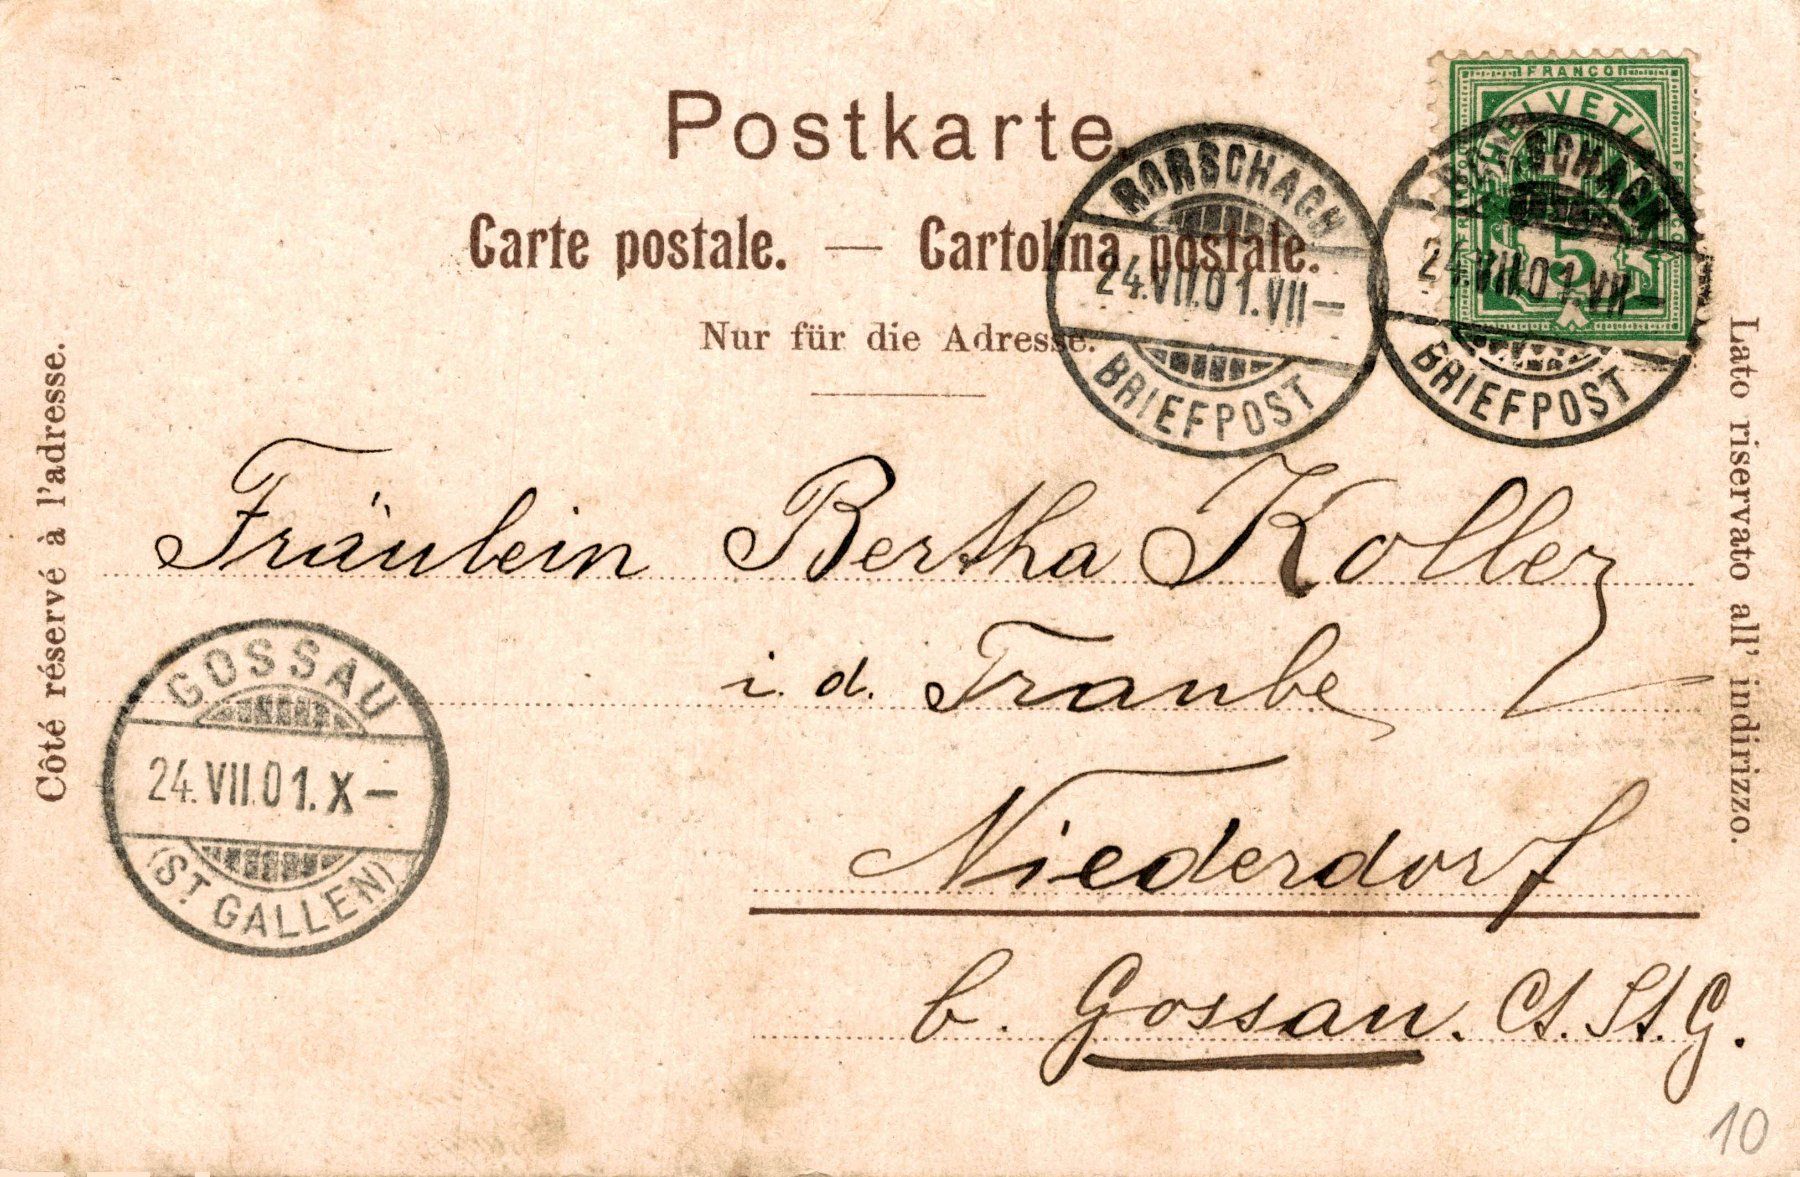 Postkarte
Carte postale. — Cartolina postale.
Nur für die Adresse.
FRANCO
HELVETIA
5
RORSCHACH
24.VII.01.VII—
BRIEFPOST
RORSCHACH
24.VII.01.VII—
BRIEFPOST
Côté réservé à l'adresse.
Lato riservato all' indirizzo.
Fräulein Bertha Koller
i. d. Traube
Niederdorf
b. Gossau. Ct. St. G.
GOSSAU
24.VII.01.X—
(ST. GALLEN)
10